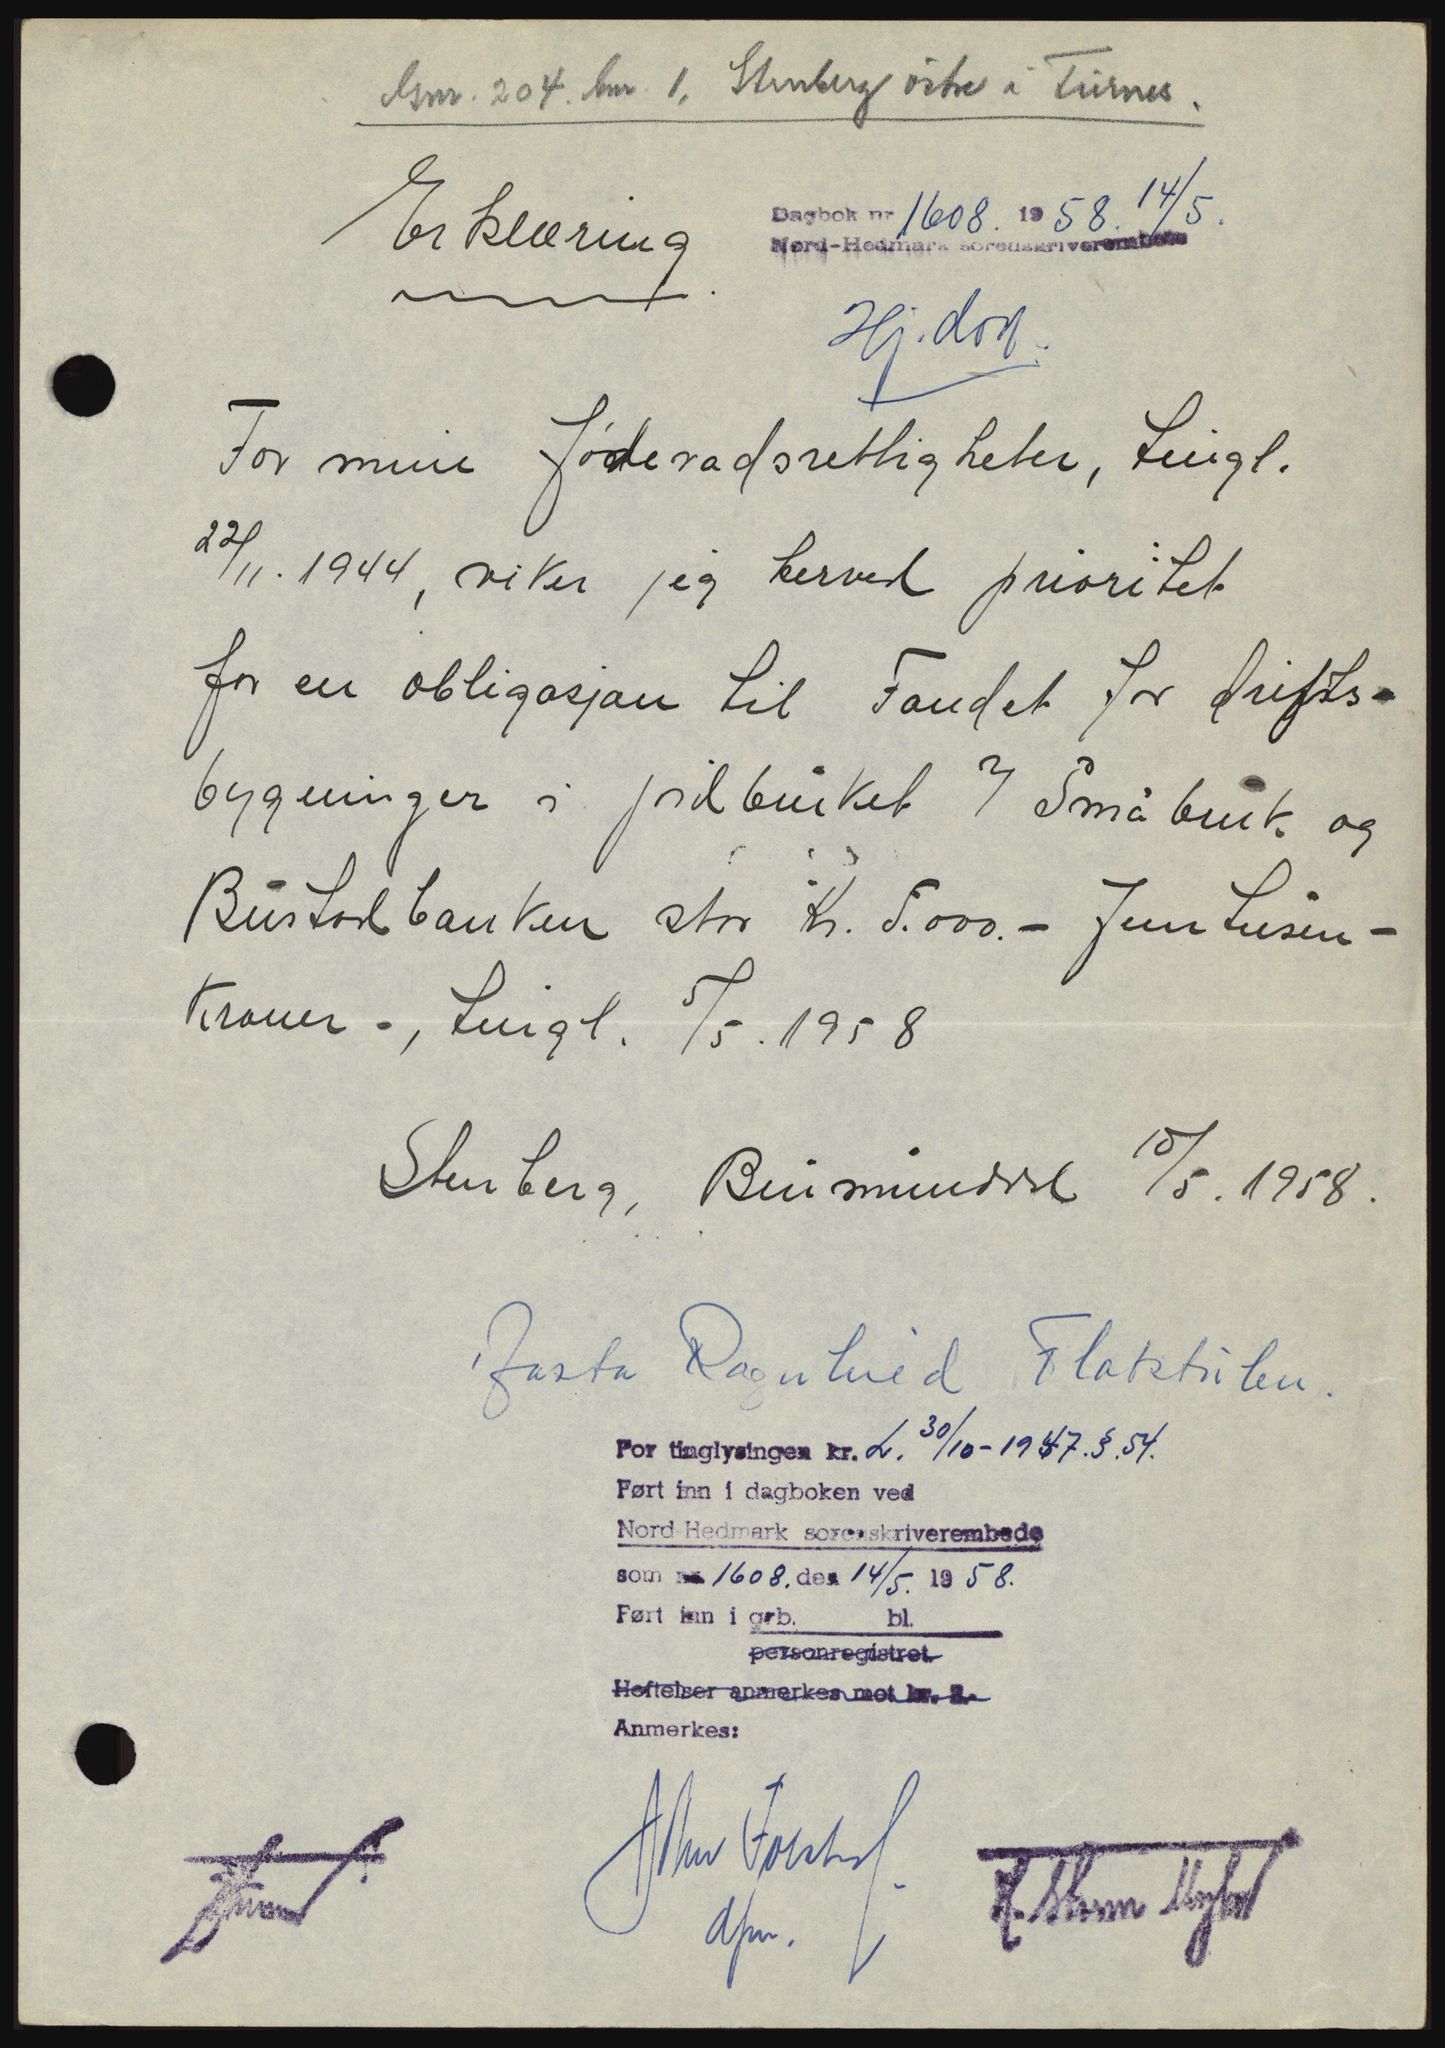 Gnr. 204. bnr. 1. Stenberg östre i Furnes.
Erklæring
Dagbok nr 1608. 1958. 14/5.
Nord-Hedmark sorenskriverembede
Hj.dok.
For mine föderadsrettigheter, tingl.
22/11. 1944, viker jeg herved prioritet
for en obligasjon til Fondet for drifts-
bygninger i jordbruket v/ Småbruk og
Bustadbanken stor kr. 5.000.- fem tusen-
kroner -, tingl. 5/5. 1958
Stenberg, Brumunddal 10/5. 1958.
Josta Ragnhild Flatstulen.
For tinglysingen kr. L. 30/10-1947. § 54.
Ført inn i dagboken ved
Nord-Hedmark sorenskriverembede
som nr 1608. den 14/5. 1958.
Ført inn i grb. bl.
personregistret.
Heftelser anmerkes mot kr. 2.-
Anmerkes:
dfm.